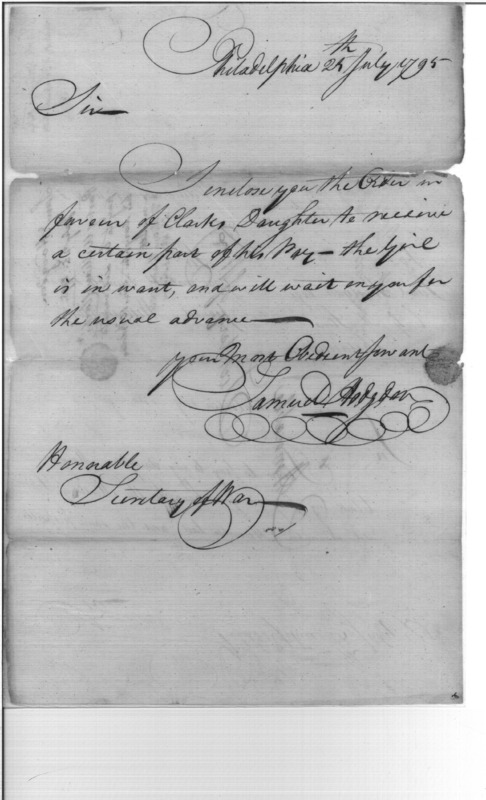 Philadelphia 25th July 1795
Sir
I enclose you the Order in
favour of Clarks Daughter to receive
a certain part of his Pay - the Girl
is in want, and will wait on you for
the usual advance
your Most Obedient Servant
Samuel Hodgdon
Honorable
Secretary of War